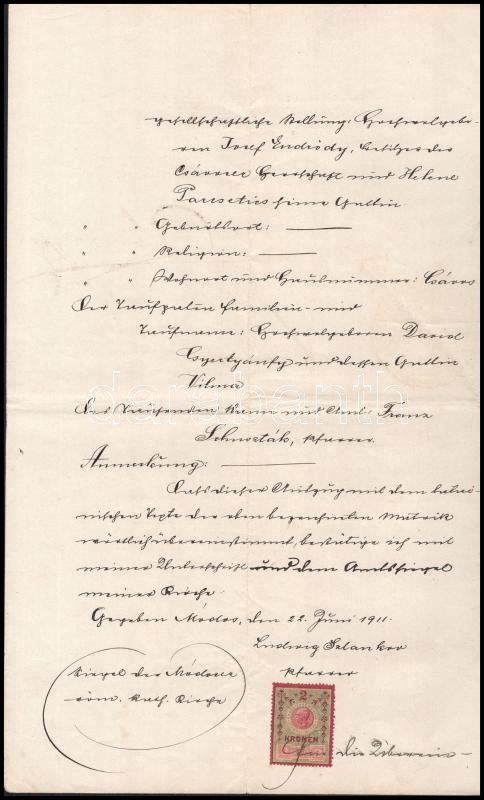 gesellschaftliche Stellung: Hochwolgebo-
ren Josef Endrődy, Besitzer der
Csávoser Herrschaft und Helene
Pausetics seine Gattin.
" " Geburtsort: ———
" " Religion: ———
" " Wohnort und Hausnummer: Csávos
Der Taufpaten Familien- und
Taufname: Hochwolgeboren David
und dessen Gattin
Vilma
Des Taufenden Name und Amt: Franz
Pfarrer.
Anmerkung: ———
Dass dieser Auszug mit dem latei-
nischen Texte der oben bezeichneten Matrik
wörtlich übereinstimmt, bestätige ich mit
meiner Unterschrift und dem Amtssiegel
meiner Kirche.
Gegeben Módos, den 22. Juni 1911.
Ludwig Szlankor
Pfarrer
Siegel der Módoser
röm. kath. Kirche
2
KRONEN
die Überein-
darabanth